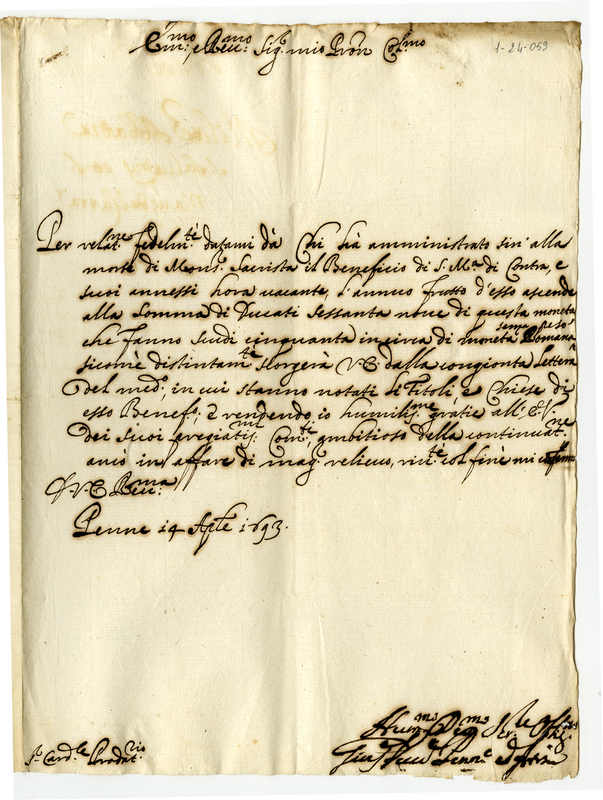 Em.mo e Rev.mo Sig.r mio Pron Col.mo
1-24-059
Per relat.ne fedelm.te datami dà Chi hà amministrato sin' alla
morte di Mons.r Sacrista il Beneficio di S. M.a di Contra, e
suoi annessi hora vacante, l'annuo frutto d'esso ascende
alla Somma di Ducati Sessanta nove di questa moneta
che fanno scudi cinquanta in circa di moneta Romana
senza peso
sicome distintam.te scorgerà V. E. dalla congionta lettera
del med.o, in cui stanno notati li Titoli, e Chiese di
esso Benef.o; E rendendo io humiliss.me gratie all' E. V.
dei Suoi pregiatiss.mi Com.ti, ambitioso della continuat.ne
anco in affare di mag.r relievo, riv.te col fine mi
D. V. E. Rev.ma
Penne 14 Aple 1693.
S.r Card.le Prodat.rio
Hum.mo Dev.mo Ser.re
Penne